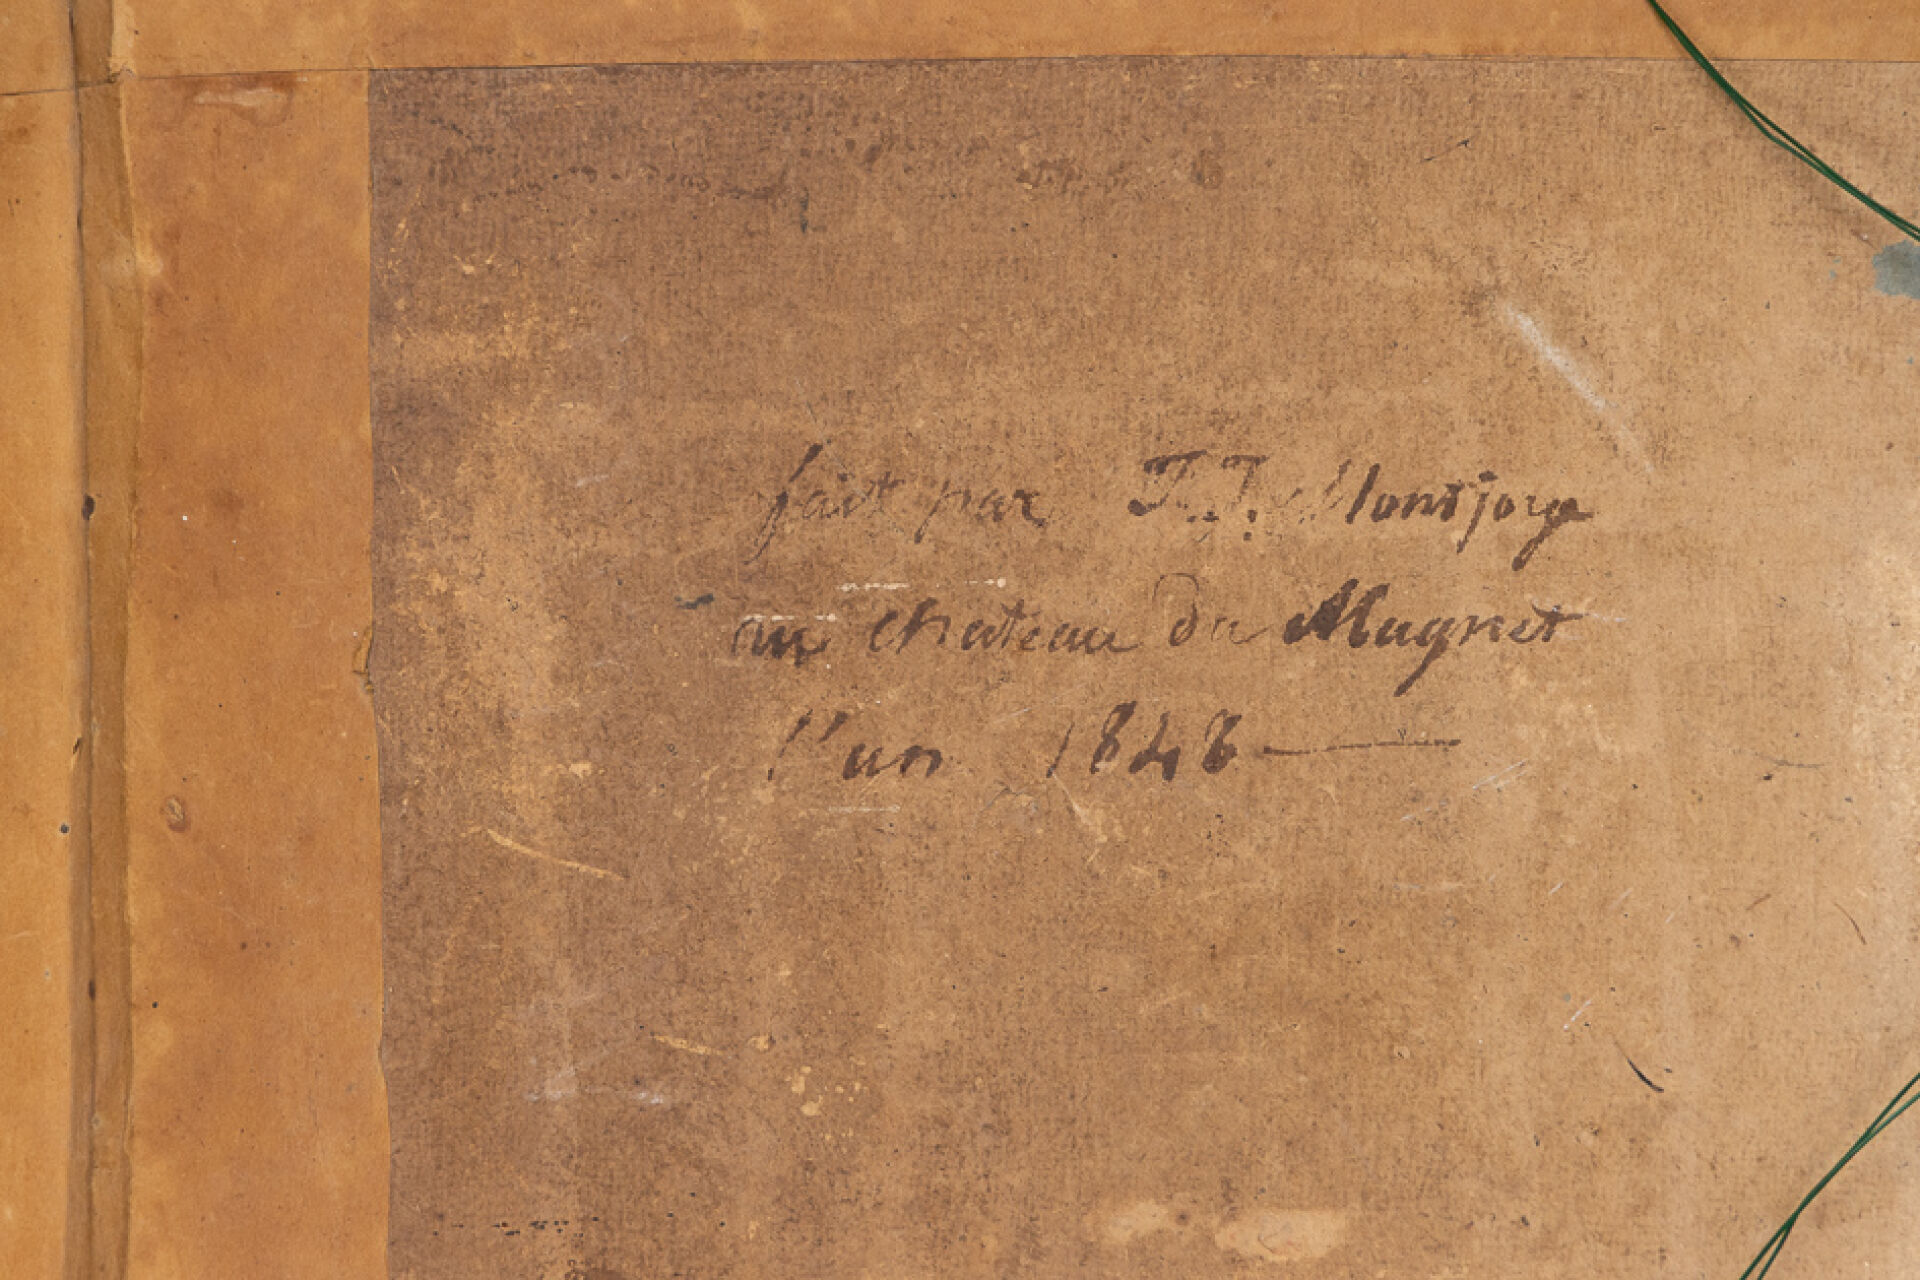 fait par J. J. Montjoye
au chateau du Magnet
l'an 1848